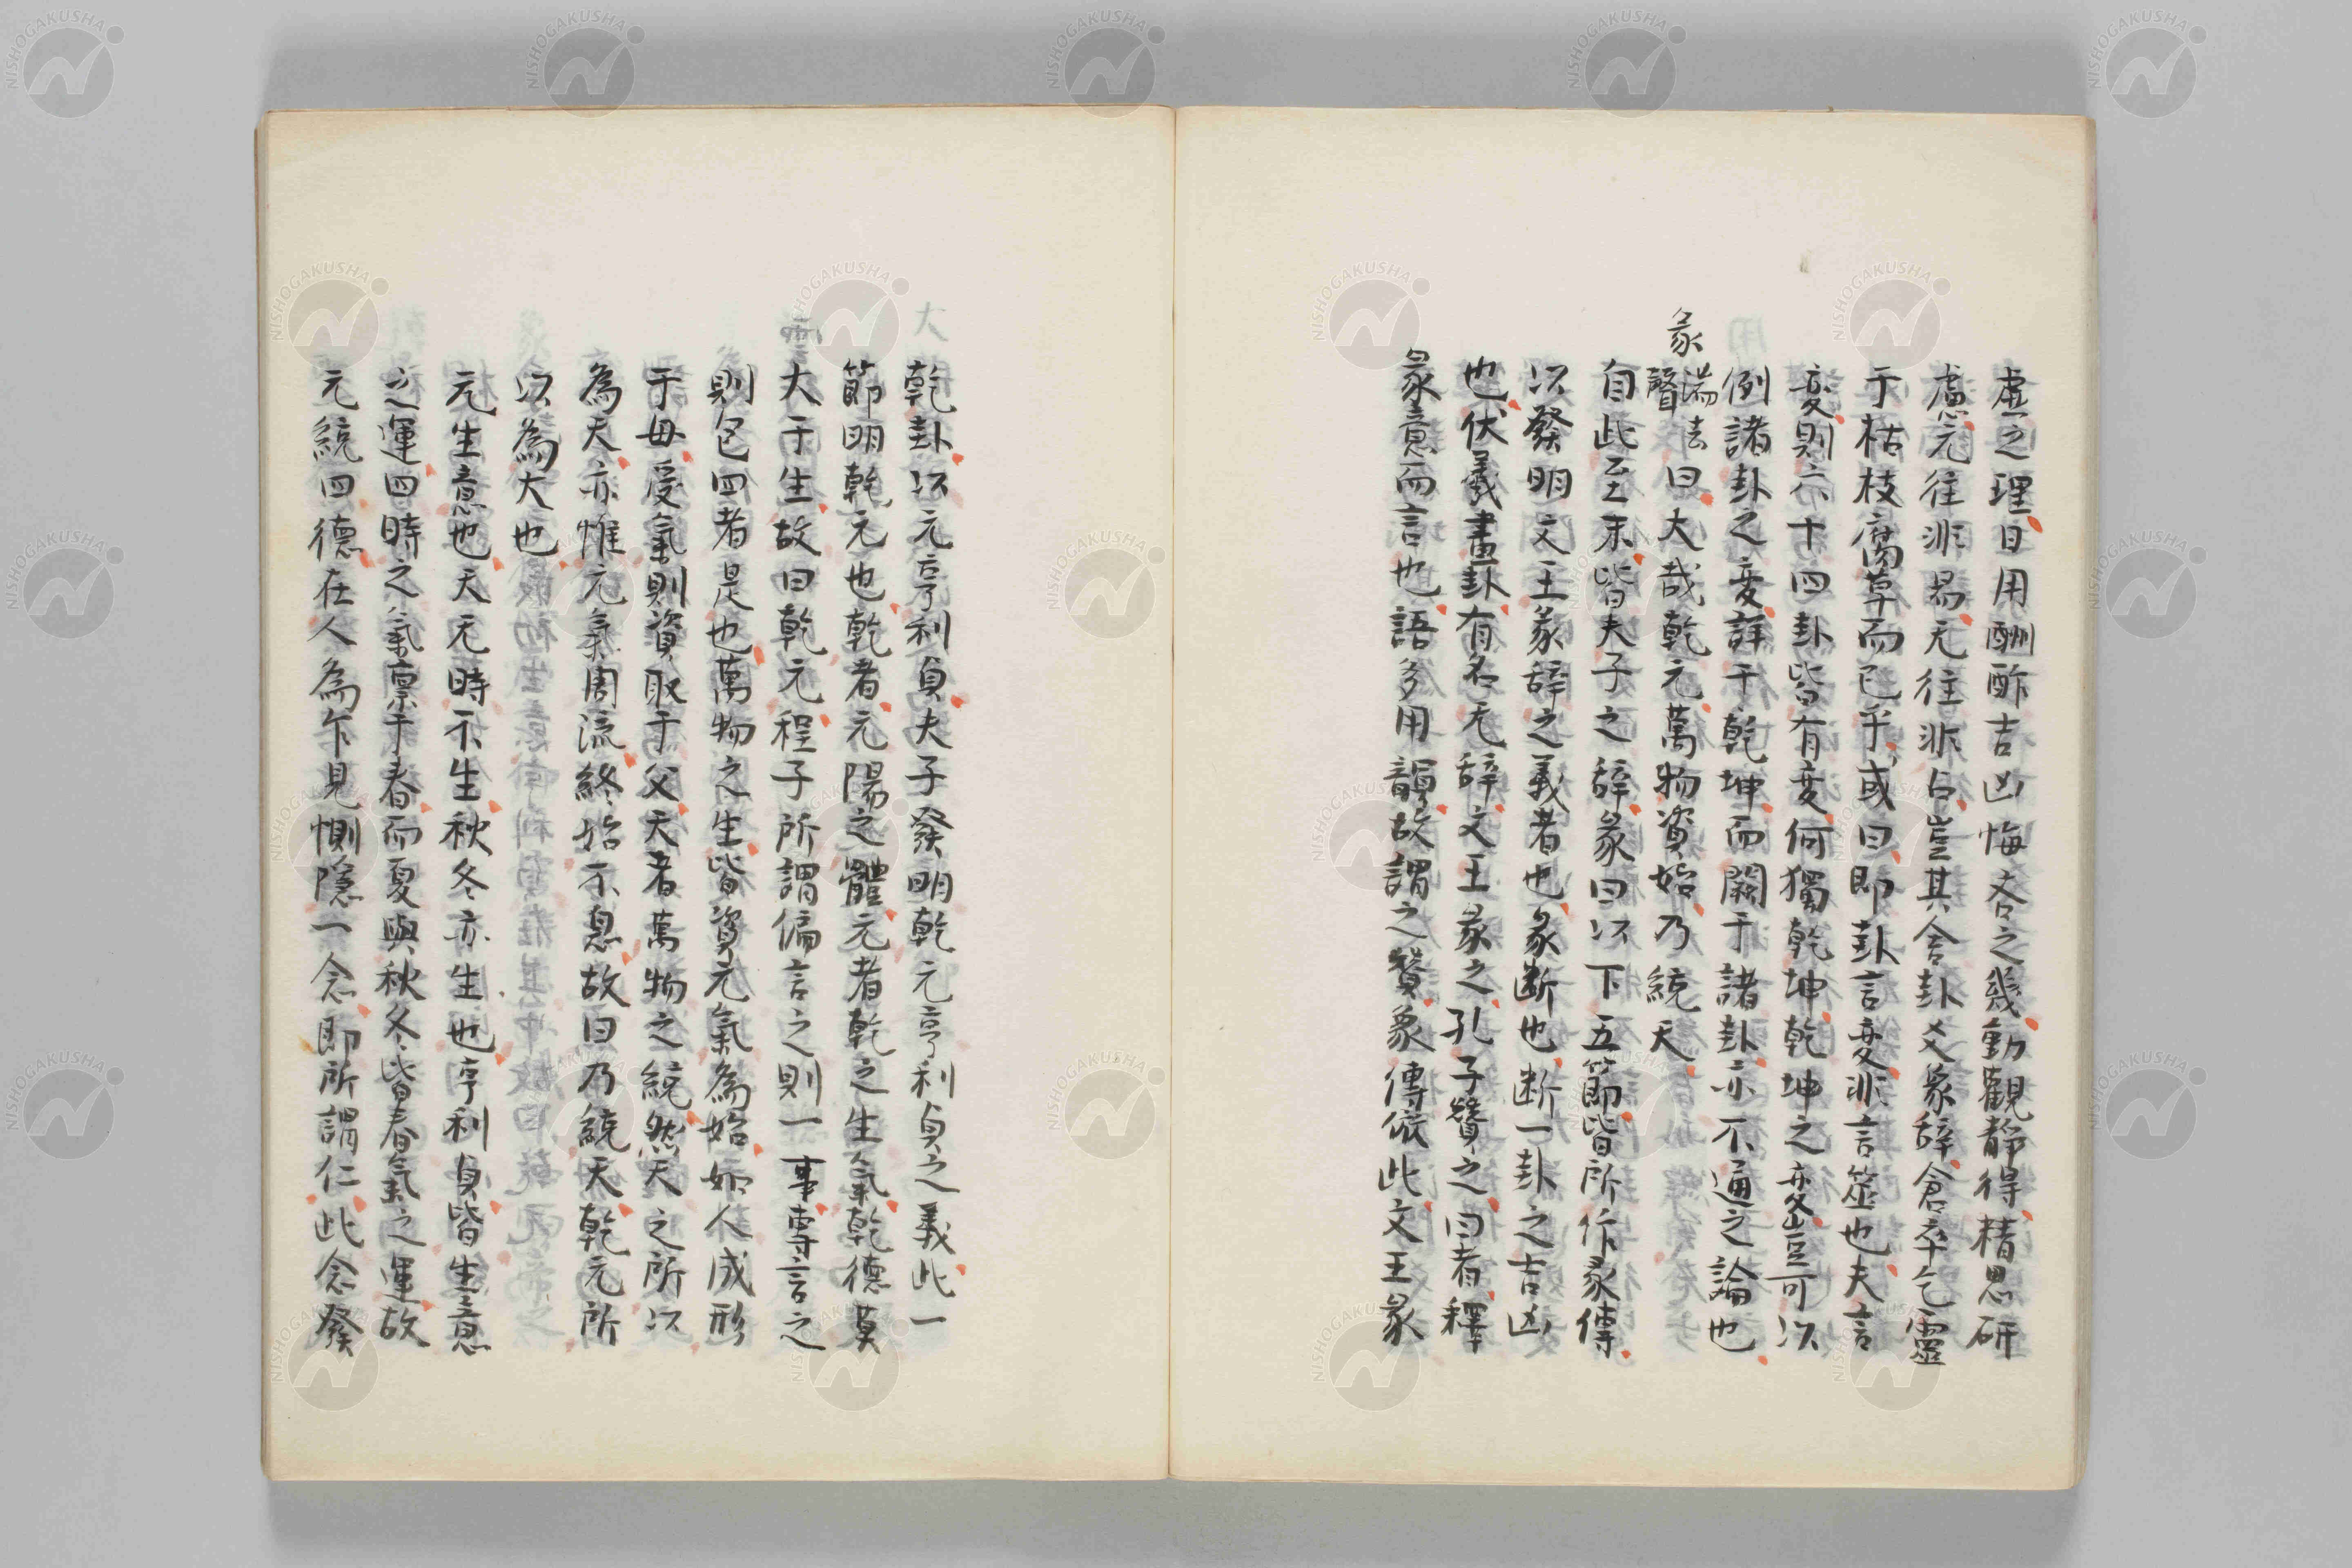 虚之理日用酬酢吉凶悔吝之幾動觀靜得精思研
慮無往非易无往非占豈其舍卦爻彖辭倉卒乞靈
于枯枝腐草而已乎或曰即卦言变非言筮也夫言
变則六十四卦皆有变何獨乾坤乾坤之变豈可以
例諸卦之变詳于乾坤而闕于諸卦亦不通之論也
彖
湍去聲
曰大哉乾元萬物資始乃統天
自此至末皆夫子之辞彖曰以下五節皆所作彖傳
以發明文王彖辞之義者也彖断也断一卦之吉凶
也伏羲畫卦有名无辞文王彖之孔子贊之曰者釋
彖意而言也語多用韻故謂之贊象傳倣此文王彖
乾卦以元亨利貞夫子發明乾元亨利貞之義此一
節明乾元也乾者元陽之體元者乾之生氣乾德莫
大于生故曰乾元程子所謂偏言之則一事專言之
則包四者是也萬物之生皆資元氣為始如人成形
于母受氣則資取于父天者萬物之統然天之所以
為天亦惟元氣周流終始不息故曰乃統天乾元所
以為大也
元生意也天无時不生秋冬亦生也亨利貞皆生意
之運四時之氣禀于春而夏與秋冬皆春氣之運故
元統四德在人為乍見惻隠一念即所謂仁此念發
NISHOGAKUSHA